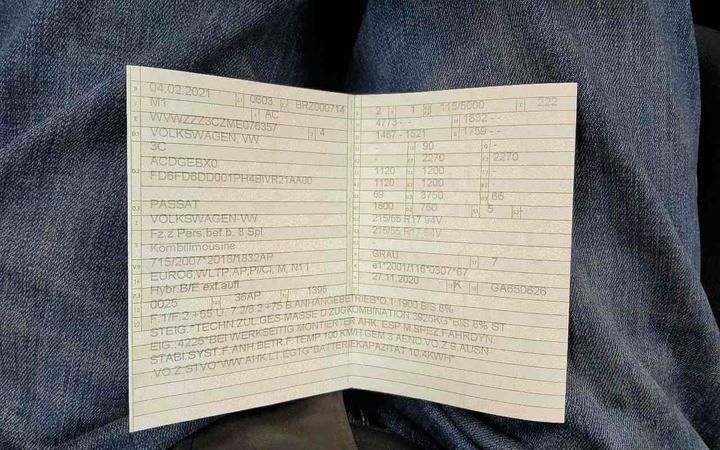 04.02.2021 0603 BRZ000714
M1 AC
WVWZZZ3CZME076357 4
VOLKSWAGEN, VW
3C
ACDGEBX0
FD6FD6DD001PH4BIVR21AA00
PASSAT
VOLKSWAGEN-VW
Fz.z.Pers.bef.b. 8 Spl.
Kombilimousine
715/2007*2018/1832AP
EURO6,WLTP,AP,PI/CI, M, N1 I
Hybr.B/E ext.aufl.
0025 36AP 1395
2 1 115/5000 222
4773-- 1832--
1467-1521 1759--
- 90 -
- 2270 2270
1120 1200 -
1120 1200 -
69 3750 66
1600 750 5 -
215/55 R17 94V
215/55 R17 94V
-
GRAU 7
e1*2001/116*0307*67
27.11.2020 K GA650626
F.1/F.2:+55 U. 7.2/8.2+75 B.ANHÄNGEBETRIEB*O.1:1900 BIS 8%
STEIG.*TECHN.ZUL.GES-MASSE D ZUGKOMBINATION 3925KG*BIS 8% ST
EIG.:4225*BEI WERKSEITIG MONTIERTER AHK: ESP M.SPEZ.FAHRDYN.
STABI.SYST.F.ANH.BETR.F.TEMP 100 KM/H GEM.3.AEND VO.Z.9.AUSN
VO.Z.STVO*WW.AHK LT.EGTG*BATTERIEKAPAZITÄT 10.4KWH*